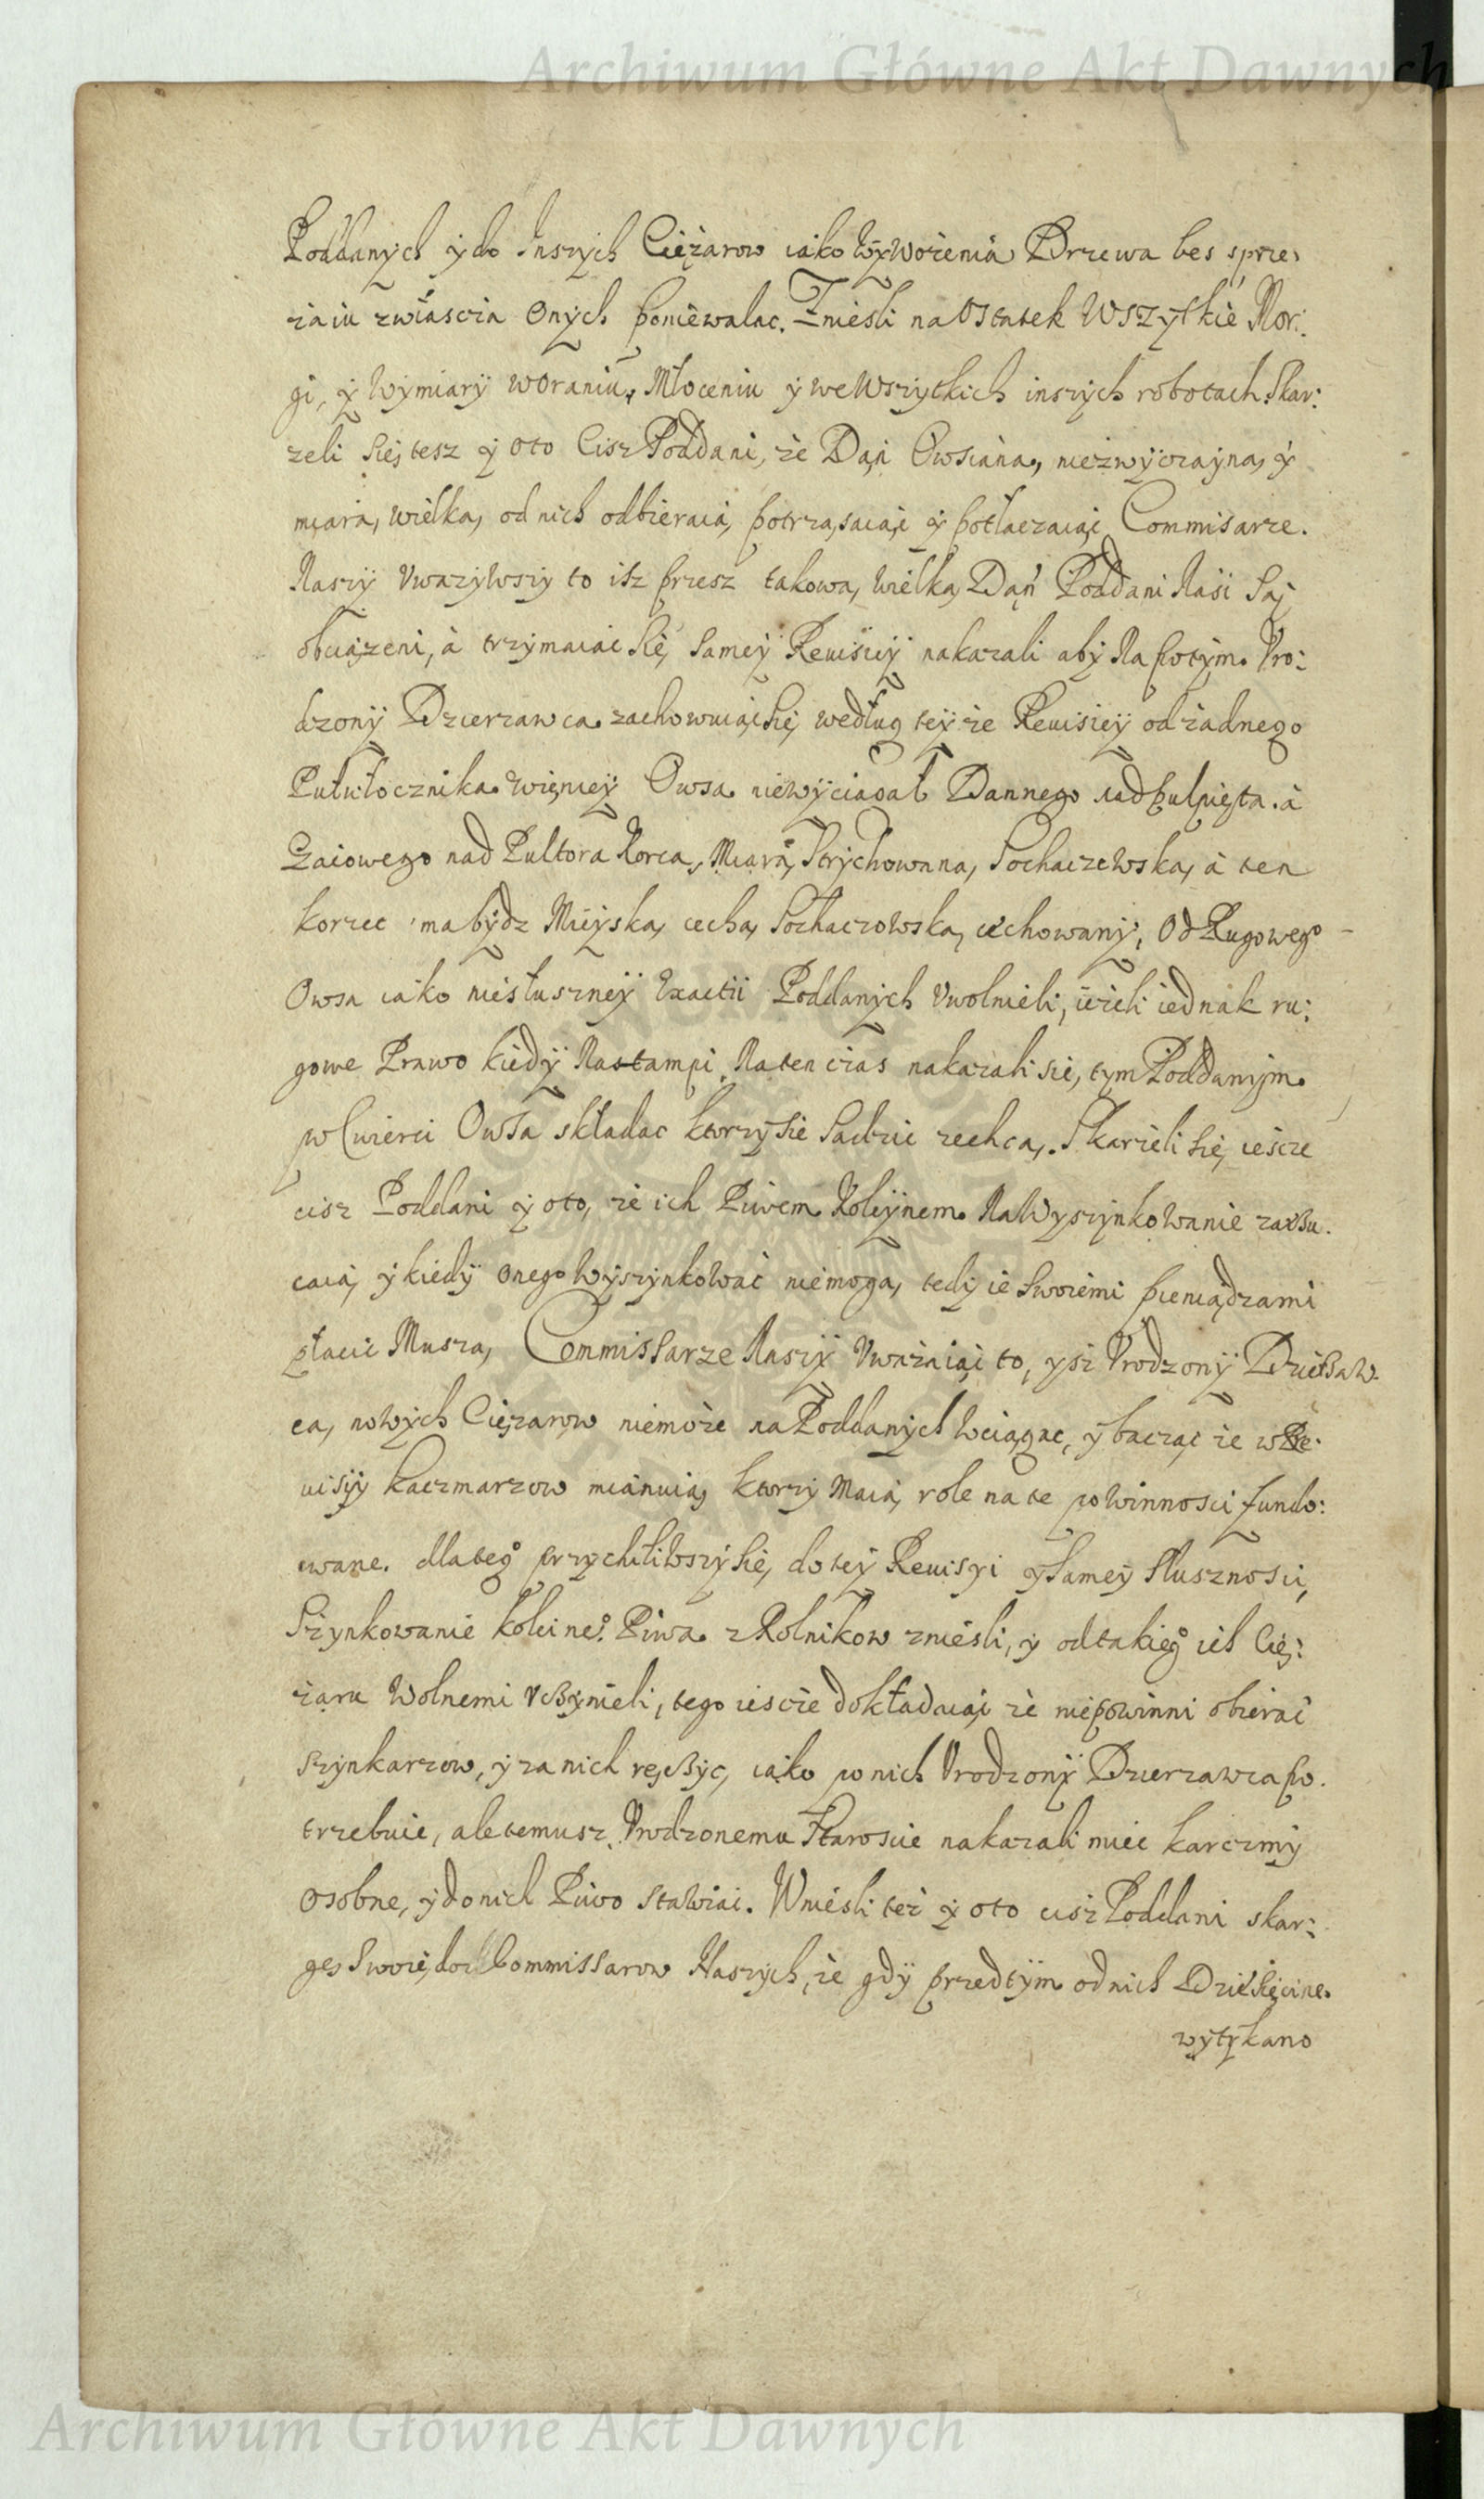 Archiwum Główne Akt Dawnych
Poddanych y do Inszych Ciężarow iako Wywożenia Drzewa bes sprze,
żaiu zwłascza Onych poniewalac. Znieśli na Ostatek Wszytkie Mor:
gi, y Wymiary w Oraniu, Młoceniu y we Wszytkich inszych robotach. Skar:
żeli się tesz y oto Cisz Poddani, że Dań Owsianą, niezwyczayną, y
miarą, wielką, od nich odbieraią, potrząsaiąc y potłaczaiąc Commisarze.
Naszy Vważywszy to isz przesz takową, wielką Dań Poddani Nasi Są
obciążeni, à trzymaiąc się samey Reuisiey nakazali aby Na potym Vro:
dzony Dzierzawca zachowuiąc się według teyże Reuisiey od żadnego
Pułwłocznika więncey Owsa niewyciągał Dannego nad pułpięta. à
Czaiowego nad Pułtora Korca, Miarą Strychowaną, Sochaczewską, à ten
korzec ma bydz Mieyską, cechą, Sochaczowską, cechowany, Od Ługowego
Owsa iako niesłuszney Exactii Poddanych Vwolnieli, ieżeli iednak ru:
gowe Prawo kiedy Nastampi, Na ten czas nakazali się, tym Poddanym
po Cwierci Owsa składac ktorzy się Sadzic zechcą. Skarżeli się ieszcze
cisz Poddani y oto, że ich Piwem Koleynem Na Wyszynkowanie zarzu.
caią, y kiedy onego Wyszynkować niemogą, tedy ie Swoiemi pieniądzami
płacić Muszą, Commissarze Naszy Vważaiąc to, ysz Vrodzony Dzierżaw.
ca, nowych Ciężarow niemoże na Poddanych Wciągac, y bacząc że w Re.
uisiy Kaczmarzow mianuią, ktorzy Maią role na te powinnosci fundo:
wane. dlatego przychiliwszy się, do tey Reuisyi y Samey Słusznosci,
Szynkowanie koleine° Piwa z Rolnikow znieśli, y od takieg° ich Cię:
żaru Wolnemi Vczynieli, tego iescze dokładaiąc że niepowinni obierać
szynkarzow, y za nich ręczyc, iako po nich Vrodzony Dzierzawca po.
trzebuie, ale temusz Vrodzonemu Staroscie nakazali miec karczmy
osobne, y do nich Piwo stawiać. Wnieśli też y oto cisz Poddani skar:
gę Swoię, do Commissarow Naszych, że gdy przedtym od nich Dziesięcine
wytykano
Archiwum Główne Akt Dawnych